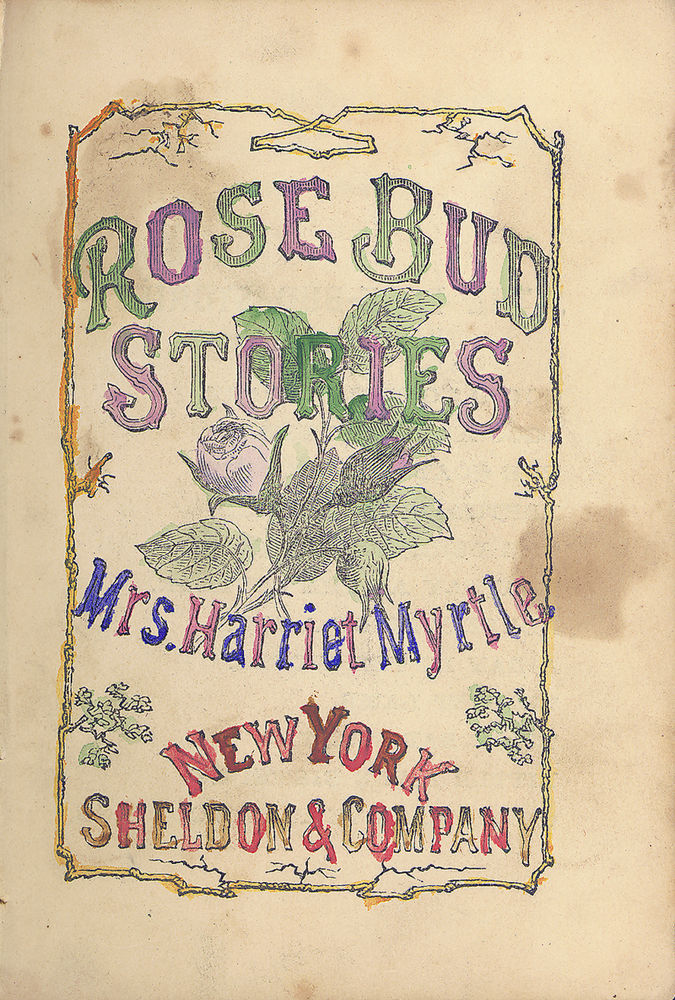 ROSE BUD
STORIES
Mrs. Harriet Myrtle.
NEW YORK
SHELDON & COMPANY